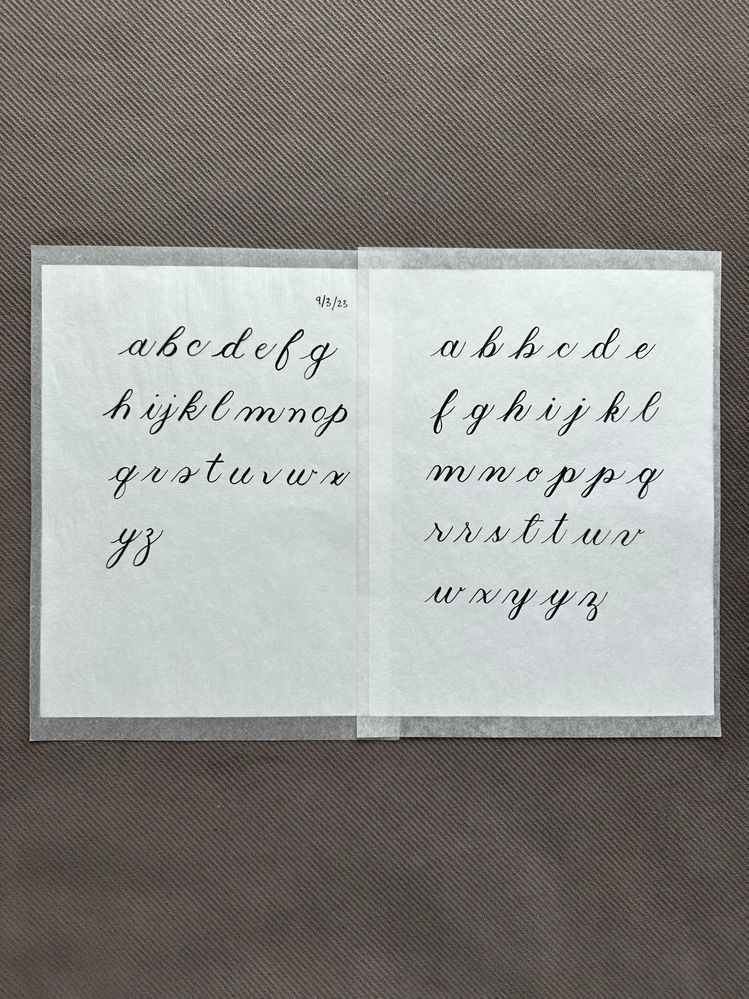 9/3/23
abcdefg
hijklmnop
qrstuvwx
yz
abbcde
fghijkl
mnoppq
rrsttuv
wxyyz